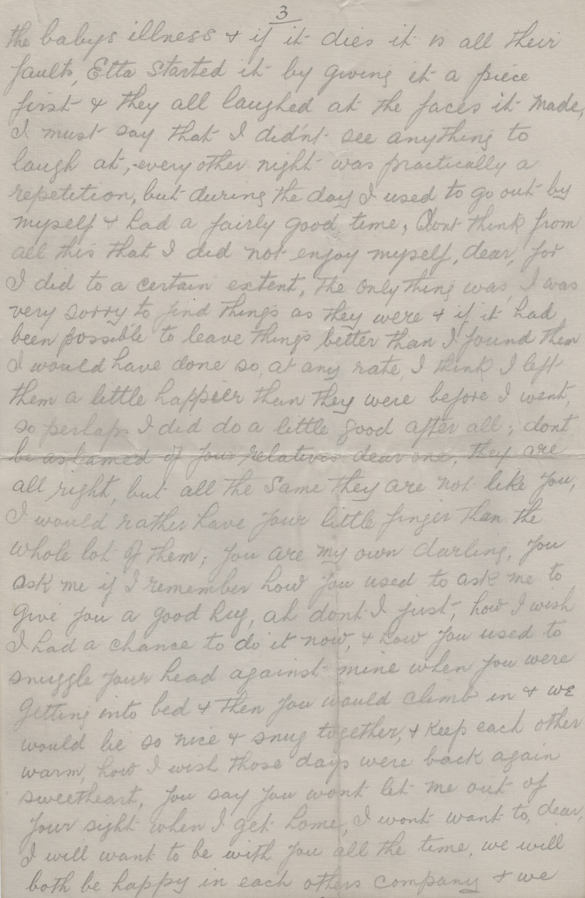 3
the babys illness & if it dies it is all their
faults, Etta started it by giving it a piece
first & they all laughed at the faces it made,
I must say that I didn't see anything to
laugh at, every other night was practically a
repetition, but during the day I used to go out by
myself & had a fairly good time, Dont think from
all this that I did not enjoy myself, dear, for
I did to a certain extent, the only thing was, I was
very sorry to find things as they were & if it had
been possible to leave things better than I found them
I would have done so, at any rate, I think I left
them a little happier than they were before I went,
so perhaps I did do a little good after all; dont
be ashamed of your relatives dear one, they are
all right, but all the same they are not like you,
I would rather have your little finger than the
whole lot of them; you are my own darling, you
ask me if I remember how you used to ask me to
give you a good hug, ah dont I just, how I wish
I had a chance to do it now, & how you used to
snuggle your head against mine when you were
getting into bed & then you would climb in & we
would be so nice & snug together, & keep each other
warm, how I wish those days were back again
sweetheart, you say you wont let me out of
your sight when I get home, I wont want to, dear,
I will want to be with you all the time, we will
both be happy in each others company & we